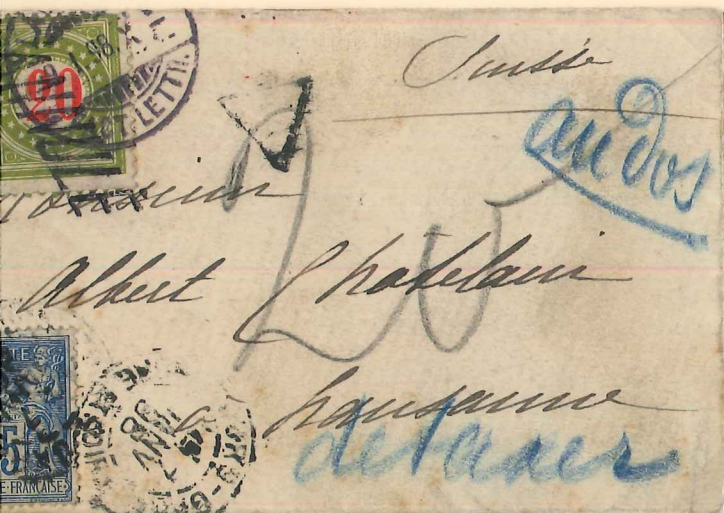 Suisse
20
au dos
Monsieur
Albert Chatelain
20
à Lausanne
detaxer
E FRANÇAISE